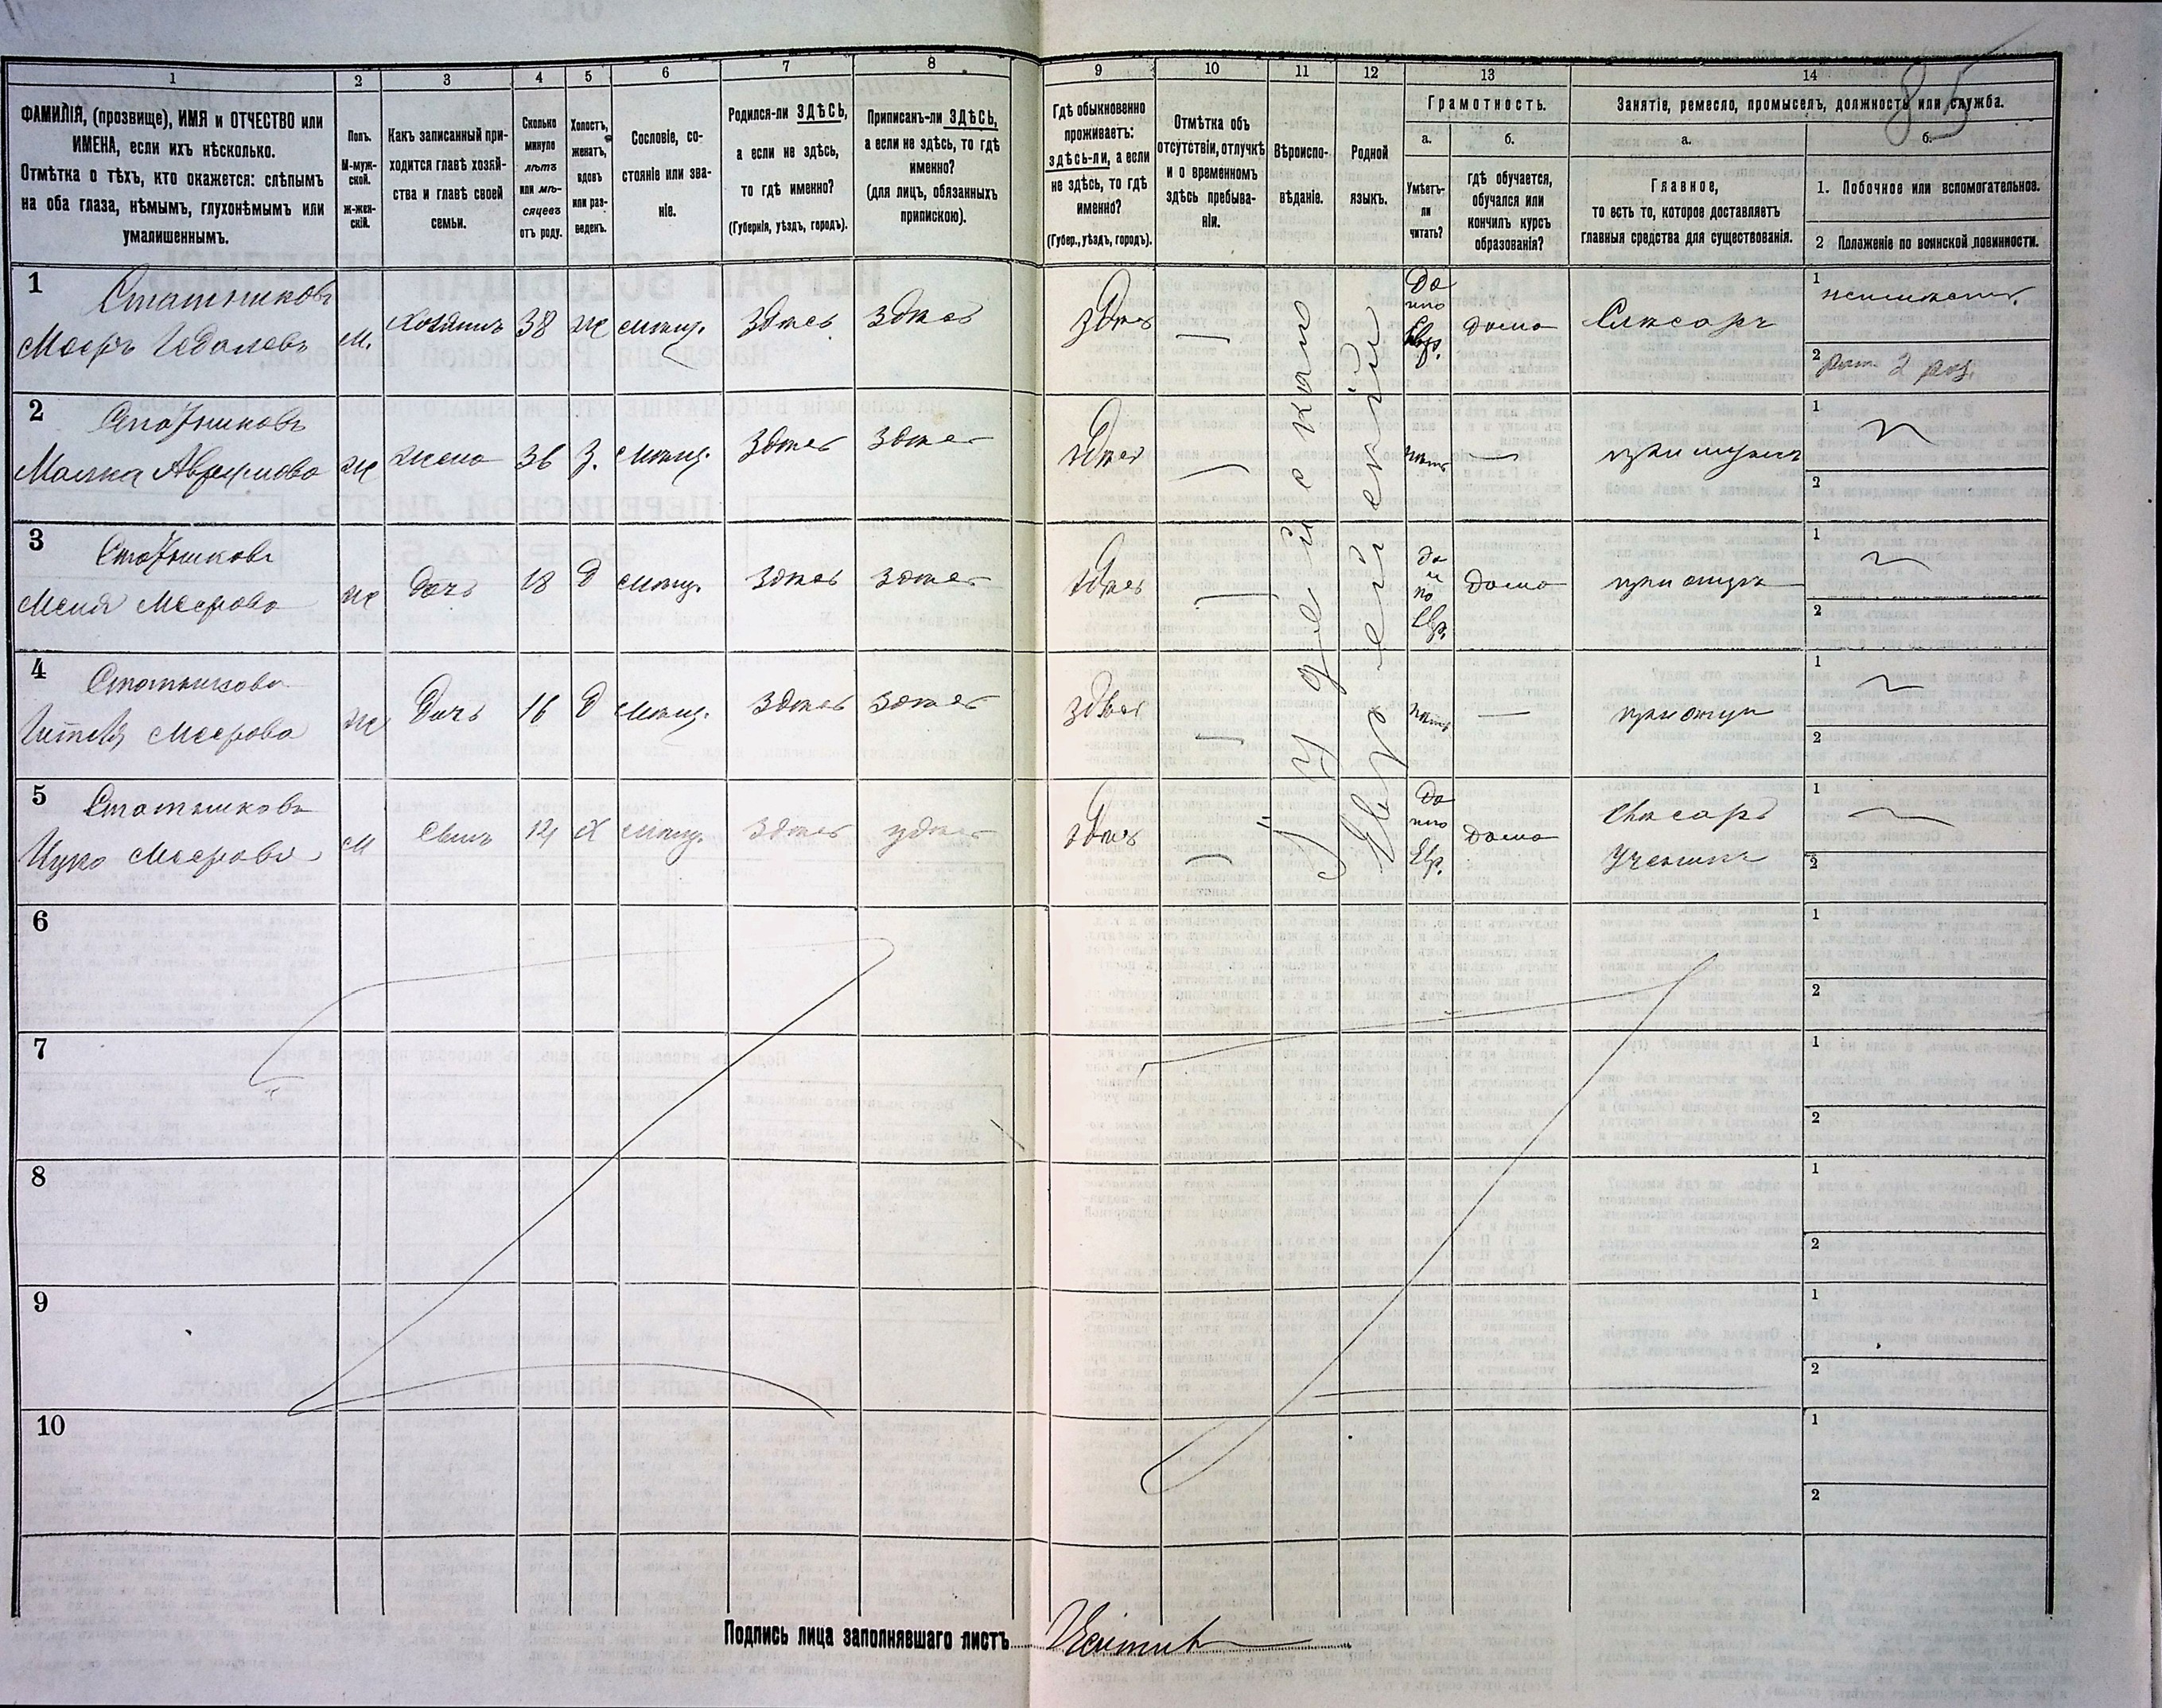 85
1 2 3 4 5 6 7 8 9 10 11 12 13 14
ФАМИЛІЯ, (прозвище), ИМЯ и ОТЧЕСТВО или
ИМЕНА, если ихъ нѣсколько.
Отмѣтка о тѣхъ, кто окажется: слѣпымъ
на оба глаза, нѣмымъ, глухонѣмымъ или
умалишеннымъ.
Полъ.
М-муж-
ской.
ж-жен-
скій.
Какъ записанный при-
ходится главѣ хозяй-
ства и главѣ своей
семьи.
Сколько
минуло
лѣтъ
или мѣ-
сяцевъ
отъ роду.
Холостъ,
женатъ,
вдовъ
или раз-
веденъ.
Сословіе, со-
стояніе или зва-
ніе.
Родился-ли ЗДѢСЬ,
а если не здѣсь,
то гдѣ именно?
(Губернія, уѣздъ, городъ).
Приписанъ-ли ЗДѢСЬ,
а если не здѣсь, то гдѣ
именно?
(для лицъ, обязанныхъ
припискою).
Гдѣ обыкновенно
проживаетъ:
здѣсь-ли, а если
не здѣсь, то гдѣ
именно?
(Губер., уѣздъ, городъ).
Отмѣтка объ
отсутствіи, отлучкѣ
и о временномъ
здѣсь пребыва-
ніи.
Вѣроиспо-
вѣданіе.
Родной
языкъ.
Грамотность.
а.
Умѣетъ-
ли
читать?
б.
гдѣ обучается,
обучался или
кончилъ курсъ
образованія?
Занятіе, ремесло, промыселъ, должность или служба.
а.
Главное,
то есть то, которое доставляетъ
главныя средства для существованія.
б.
1. Побочное или вспомогательное.
2 Положеніе по воинской повинности.
1 Статниковъ
Мееръ М. Хозяинъ 38 ж мѣщ. Здѣсь Здѣсь здѣсь — Да по Евр. дома Слесарь 1
2 рат. 2 раз.
2 Статниковъ
Малка Абрамова ж жена 36 З. мѣщ. Здѣсь Здѣсь здѣсь — нѣтъ — при мужѣ 1
2
3 Статникова
Меня Меерова ж дочь 18 д мѣщ. Здѣсь Здѣсь здѣсь — да и по Евр. дома при отцѣ 1
2
4 Статникова
Меерова ж Дочь 16 д мѣщ. Здѣсь Здѣсь здѣсь — нѣтъ — при отцѣ 1
2
5 Статниковъ
Ицко Мееровъ М Сынъ 14 Х мѣщ. Здѣсь здѣсь здѣсь — Да по Евр. дома Слесарь
Ученикъ 1
2
Іудейское
Еврейскій
6 1
2
7 1
2
8 1
2
9 1
2
10 1
2
Подпись лица заполнявшаго листъ